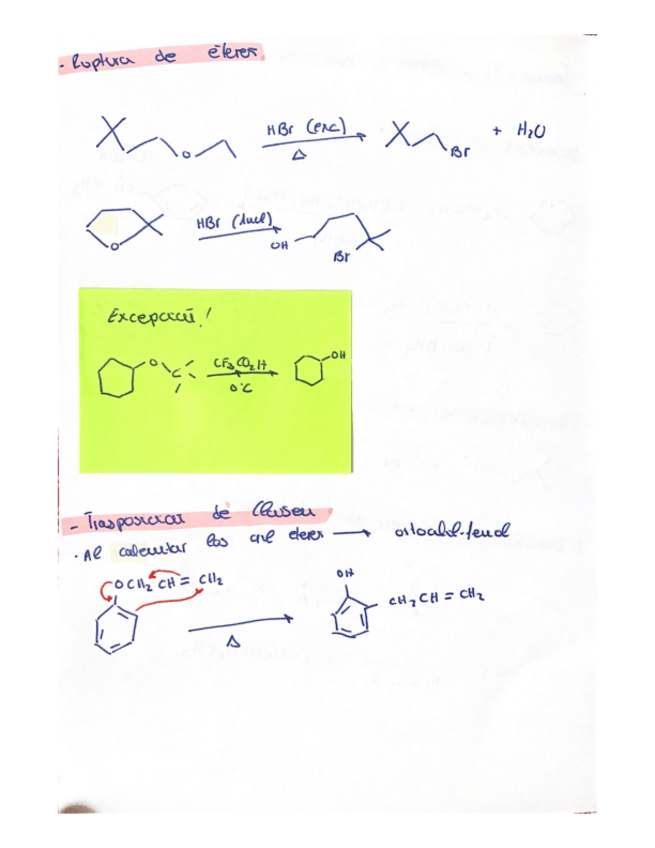 - Ruptura de éteres
HBr (exc)
Δ
O
Br
+ H₂O
O
HBr (diuel)
OH
Br
Excepción!
O
C
CF₃CO₂H
0°C
OH
- Trasposición de Claisen
· Al calentar los aril eteres → ortoalil-fenol
OCH₂ CH = CH₂
Δ
OH
CH₂CH = CH₂